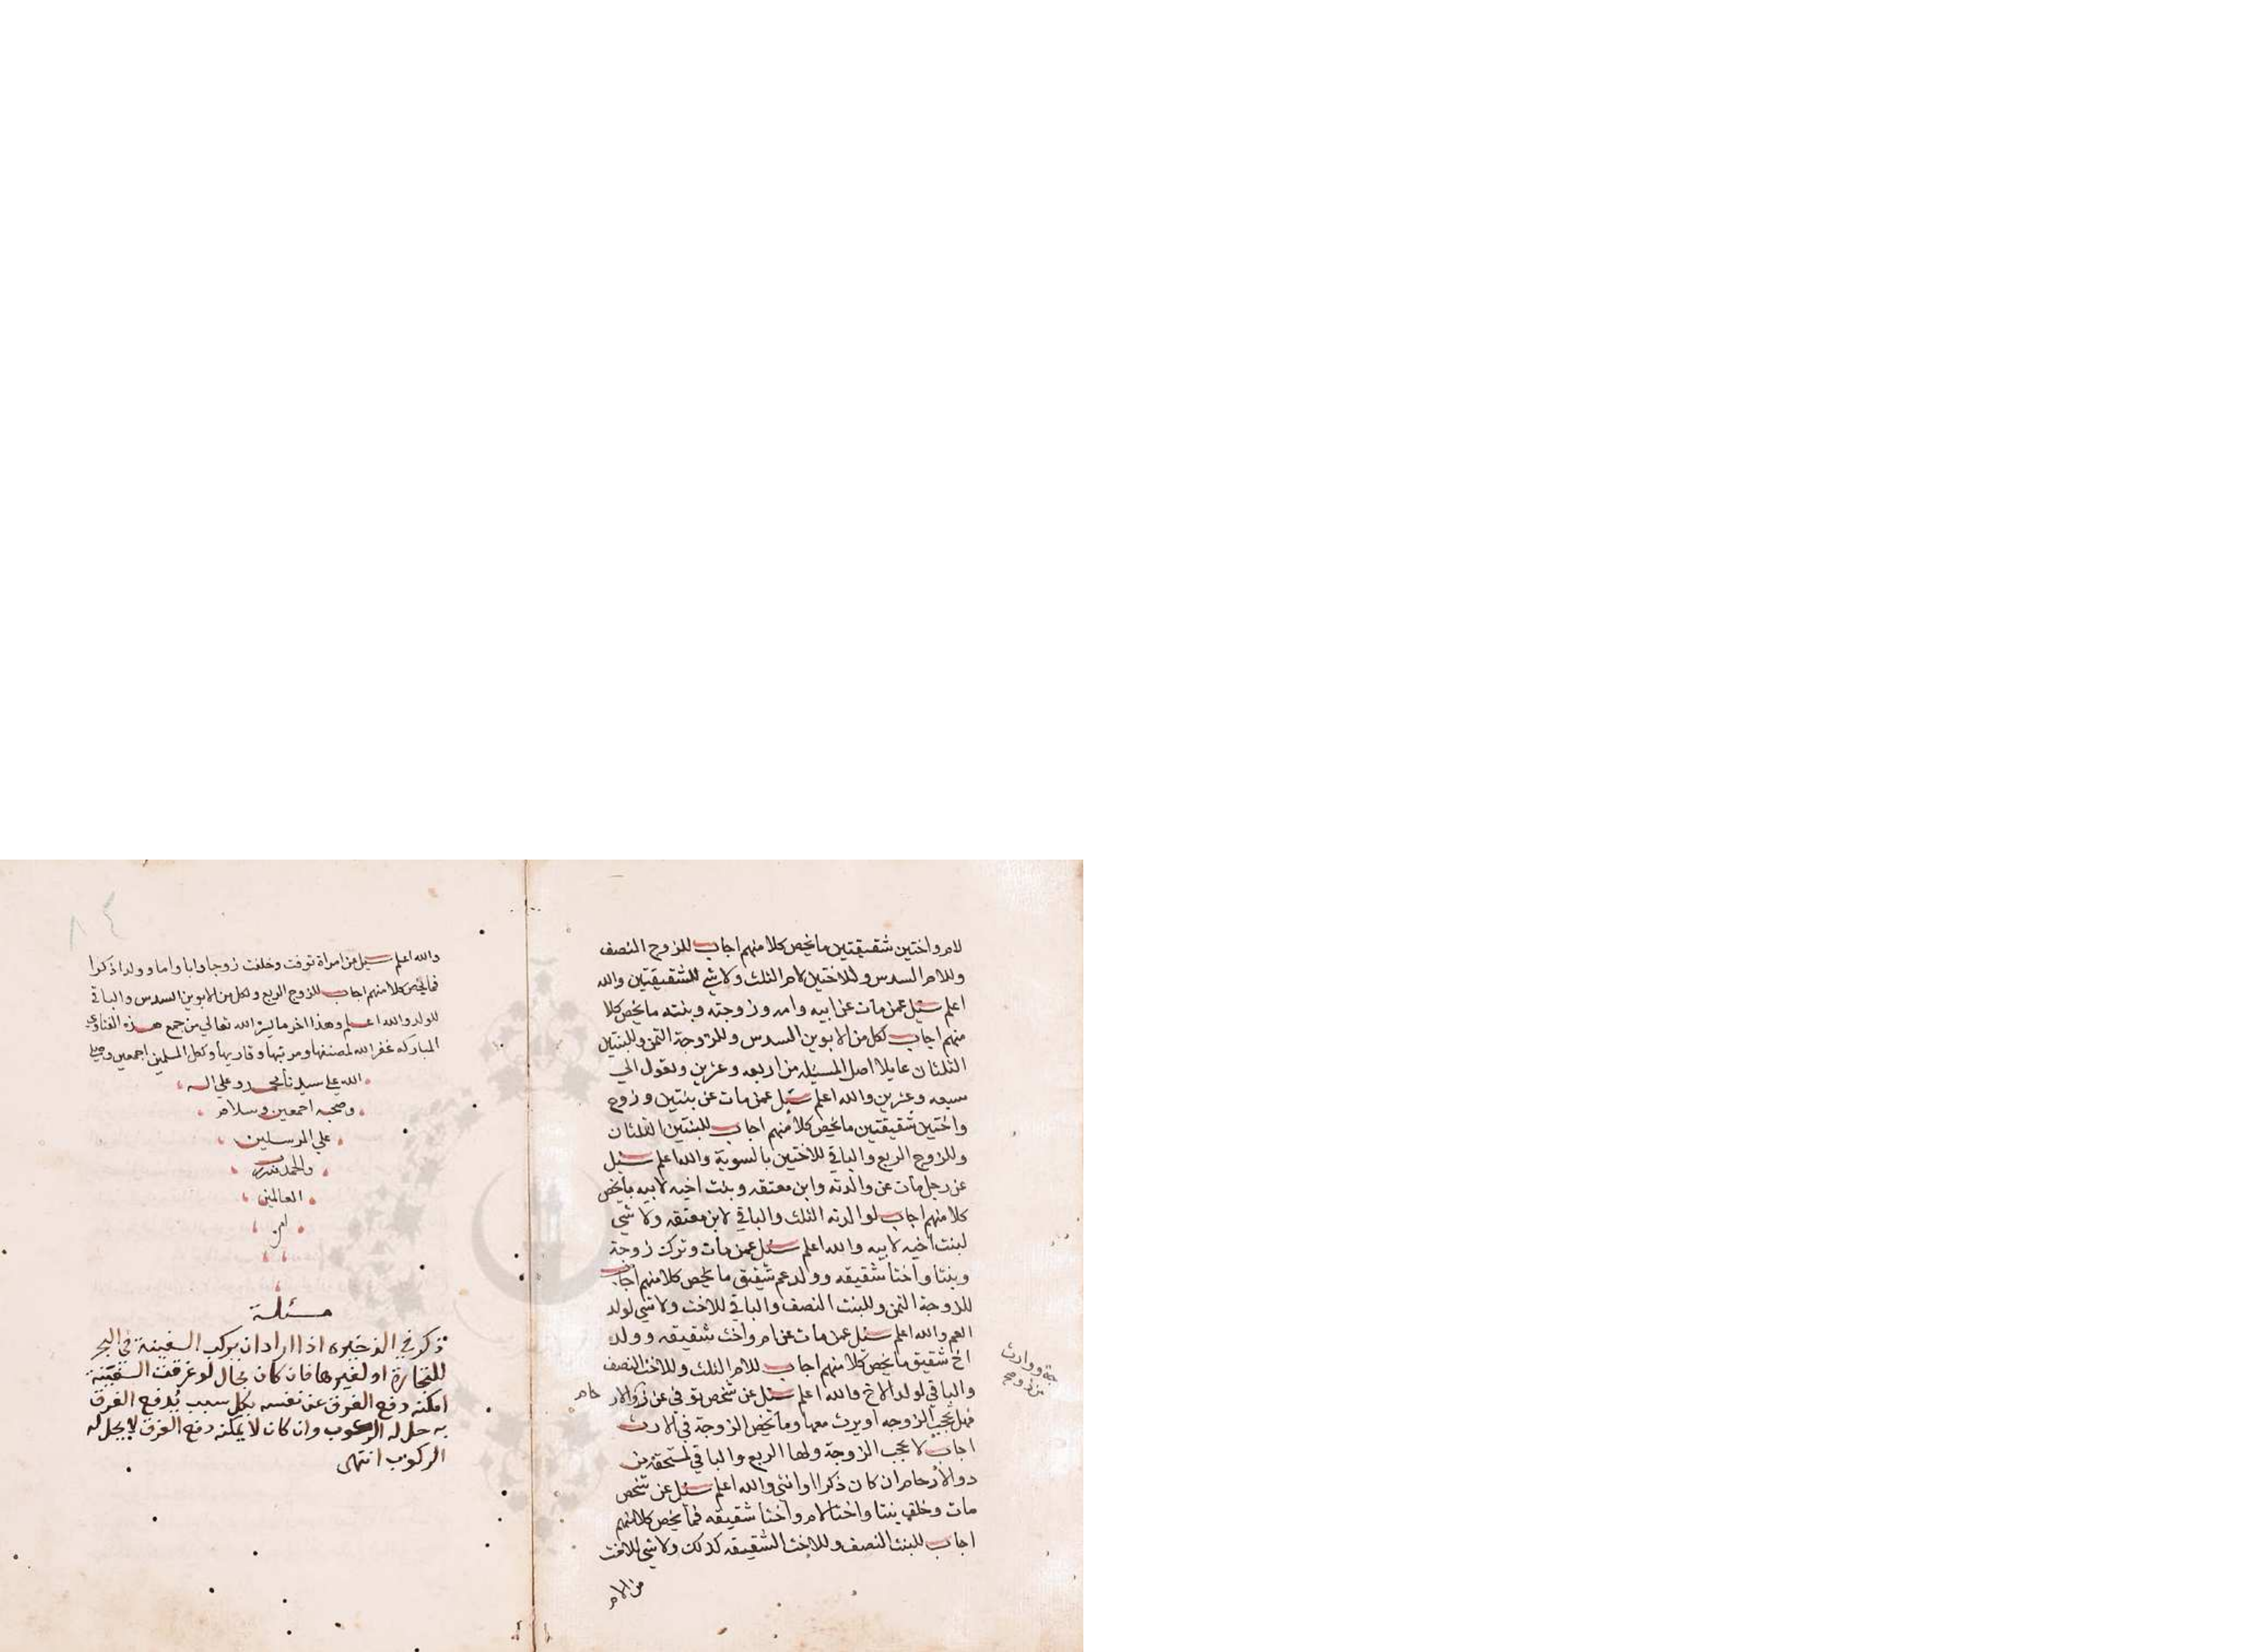 لام واختين شقيقتين ما يخص كلا منهم اجاب للزوج النصف
وللام السدس وللاختين لام الثلث ولا شي للشقيقتين والله
اعلم سئل عمن مات عن ابيه وامه وزوجته وبنته ما يخص كلا
منهم اجاب لكل من الابوين السدس وللزوجة الثمن وللبنتين
الثلثان عايلا اصل المسئلة من اربعه وعشرين وتعول الي
سبعه وعشرين والله اعلم سئل عمن مات عن بنتين وزوج
واختين شقيقتين ما يخص كلا منهم اجاب للبنتين الثلثان
وللزوج الربع والباقي للاختين بالسوية والله اعلم سئل
عن رجل مات عن والدته وابن معتقه وبنت اخيه لابيه ما يخص
كلا منهم اجاب لوالدته الثلث والباقي لابن معتقه ولا شي
لبنت اخيه لابيه والله اعلم سئل عمن مات وترك زوجة
وبنتا واختا شقيقه وولد عم شقيق ما يخص كلا منهم اجاب
للزوجة الثمن وللبنت النصف والباقي للاخت ولا شي لولد
العم والله اعلم سئل عمن مات عن ام واخت شقيقه وولد
اخ شقيق ما يخص كلا منهم اجاب للام الثلث وللاخت النصف
والباقي لولد الاخ والله اعلم سئل عن شخص توفي عن ذو الار
حام
فهل تحجب الزوجه او يرث معها وما يخص الزوجة في الارث
اجاب لا تحجب الزوجة ولها الربع والباقي لمستحقه من
ذو الارحام ان كان ذكرا او انثي والله اعلم سئل عن شخص
مات وخلف بنتا واختا لام واختا شقيقه فما يخص كلا منهم
اجاب للبنت النصف وللاخت الشقيقه كذلك ولا شي للاخت
من الام
٨٤
والله اعلم سئل عن امراة توفت وخلفت زوجا وابا واما وولدا ذكرا
فما يخص كلا منهم اجاب للزوج الربع ولكل من الابوين السدس والباقي
للولد والله اعلم وهذا اخر ما يسر الله تعالي من جمع هذه الفتاوي
المباركه غفر الله لمصنفها ومرتبها وقاريها ولكل المسلمين اجمعين وصلي
الله علي سيدنا محمد وعلي اله
وصحبه اجمعين وسلام
علي المرسلين
والحمد لله رب
العالمين
مسئلة
ذكر في الذخيره اذا اراد ان يركب السفينة في البحر
للتجارة او لغيرها فان كان بحال لو غرقت السفينة
امكنه دفع الغرق عن نفسه بكل سبب يُدفع الغرق
به حل له الركوب وان كان لا يمكنه دفع الغرق لا يحل له
الركوب انتهى